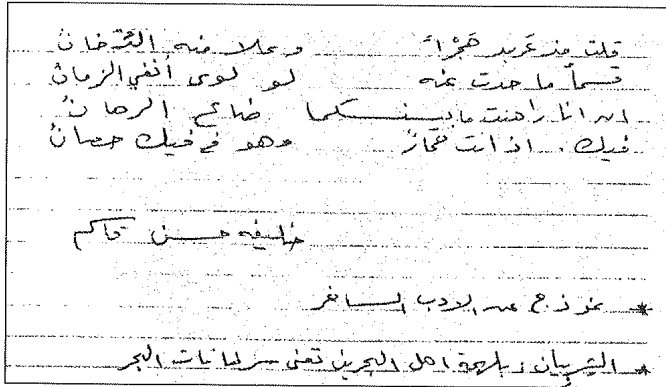 قلت مذ عَربد هَجْراً وعلا منه الدُّخانْ
قسماً ما حدت عنه لو لوى أنفي الزمانْ
ان انا راهنت ما بينكما ضاع الرهانْ
فيك . اذ انت حمارٌ وهو في فيك حصانْ
خليفه حسن قاسم
* نموذج من الادب الساخر
* : بلهجة اهل البحرين تعني سرطانات البحر